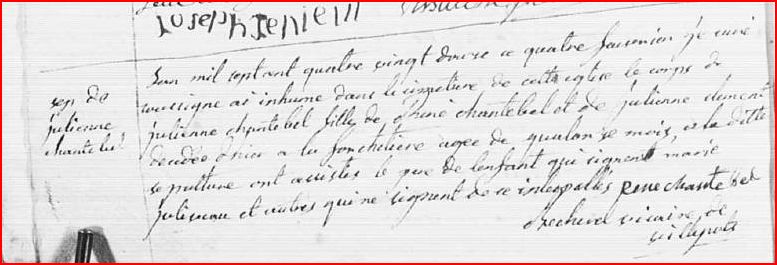 joseph jeniem
sep de
julienne
chantebel
Lan mil sept cent quatre vingt douse ce quatre janvier je curé
soussigne ai inhumé dans le cimetiere de cette eglise le corps de
julienne chantebel fille de rené chantebel et de julienne clement
decedée d'hier a la agée de quatorse mois, a la ditte
sepulture ont assistes le pere de lenfant qui signent marie
juliene et autres qui ne signent de ce interpellés rene chantebel
vicaire de